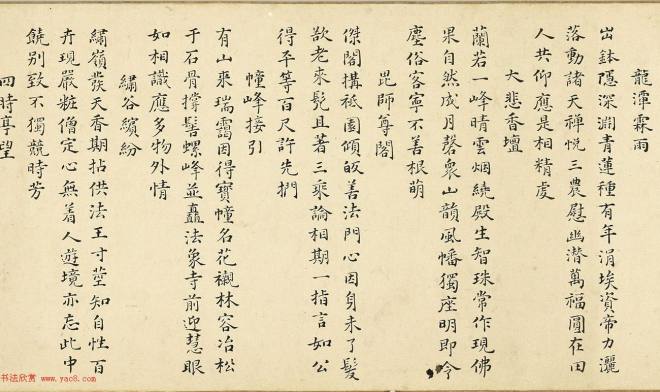 龍潭霖雨
出鉢隱深淵青蓮種有年涓埃資帝力灑
落動諸天禪悅三農慰幽潛萬福圓在田
人共仰應是相精虔
大悲香壇
蘭若一峰晴雲烟繞殿生智珠常作現佛
果自然成月磬衆山韻風幡獨座明即今
塵俗客寧不善根萌
毘師尊閣
傑閣搆祗園傾皈善法門心因身未了髮
欲老來髡且著三乘論相期一指言如公
得平等百尺許先捫
幢峰接引
有山來瑞靄因得寶幢名花襯林容冶松
于石骨撐髻螺峰並矗法象寺前迎慧眼
如相識應多物外情
繡谷繽紛
繡嶺發天香期拈供法王寸莖知自性百
卉現嚴粧僧定心無着人遊境亦忘此中
饒别致不獨競時芳
四時亭望
书法欣赏
www.yac8.com